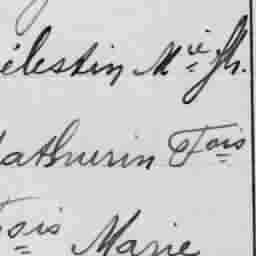 élestin Mie Jh.
athurin Fois
ois Marie